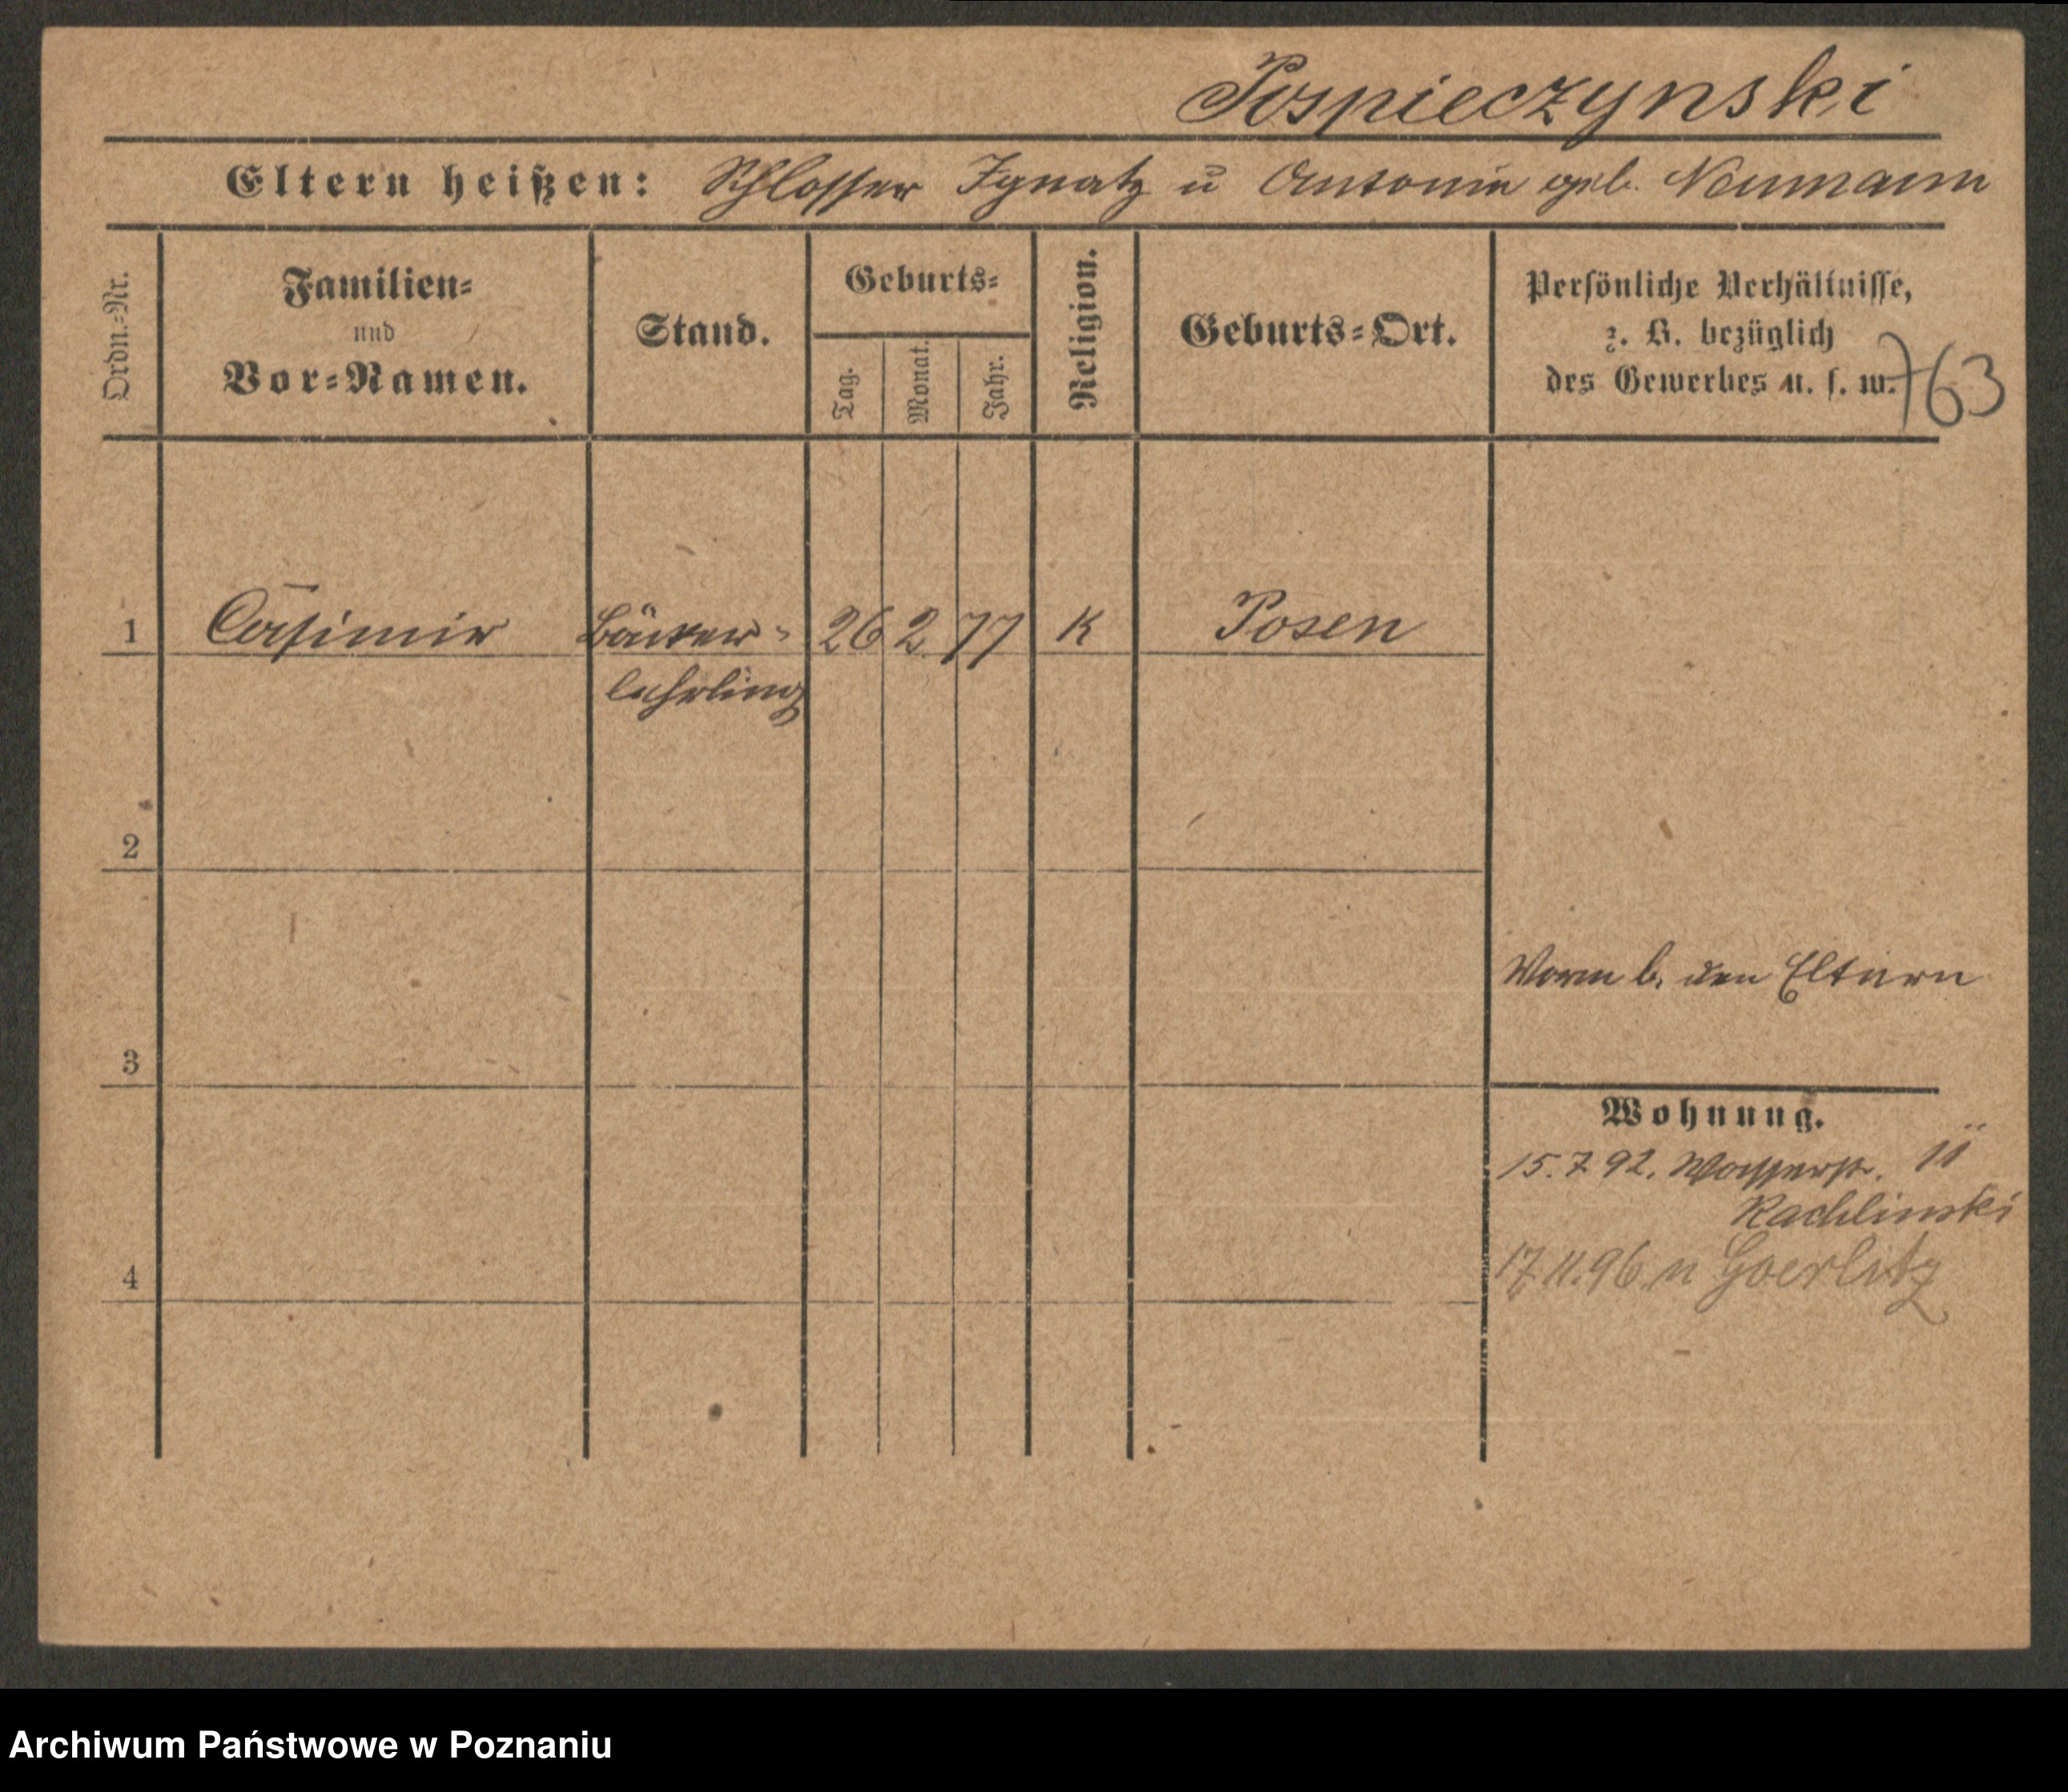 Pospieczynski
Eltern heißen: Schlosser Ignatz u Antonie geb. Neumann
Ordn.-Nr.
Familien-
und
Vor-Namen.
Stand.
Geburts-
Tag.
Monat.
Jahr.
Religion.
Geburts-Ort.
Persönliche Verhältnisse,
z. B. bezüglich
des Gewerbes u. s. w.
763
1 Casimir Bäcker- 26 2 77 K Posen
lehrling
2
b. den Eltern
3
Wohnung.
15.7.92. Wasserstr. 11
Rachlinski
4
17.11.96 n Goerlitz
Archiwum Państwowe w Poznaniu